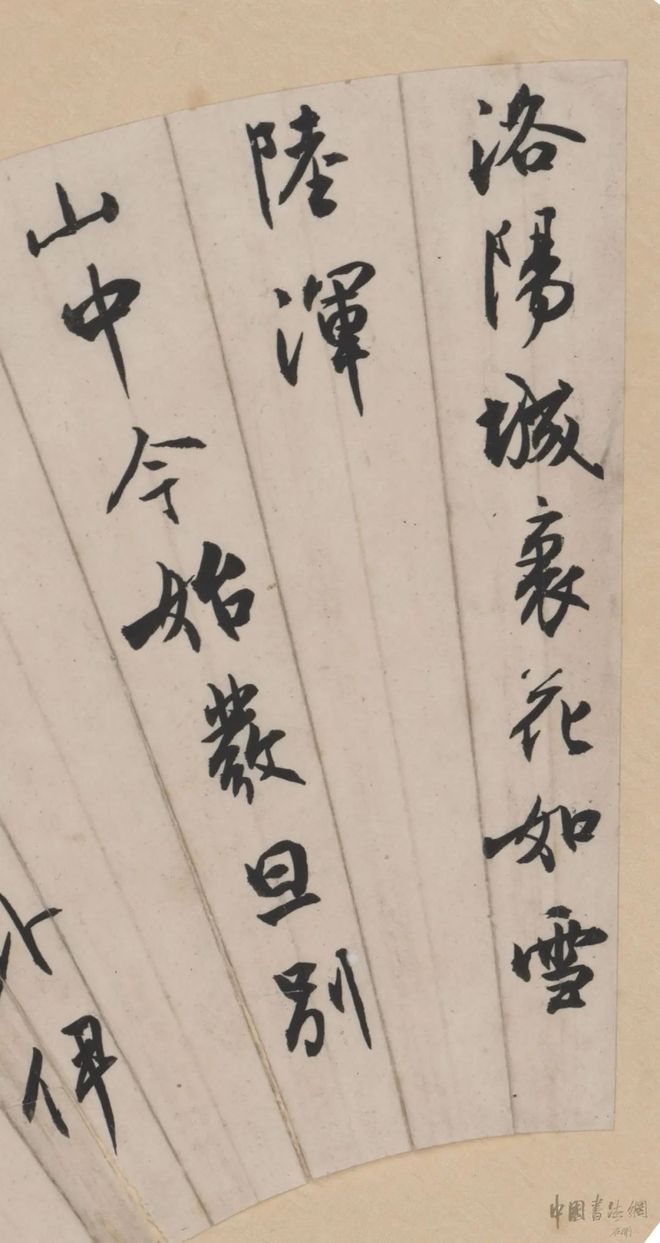 洛陽城裏花如雪
陸渾
山中今始發旦別
伊
中國書法網